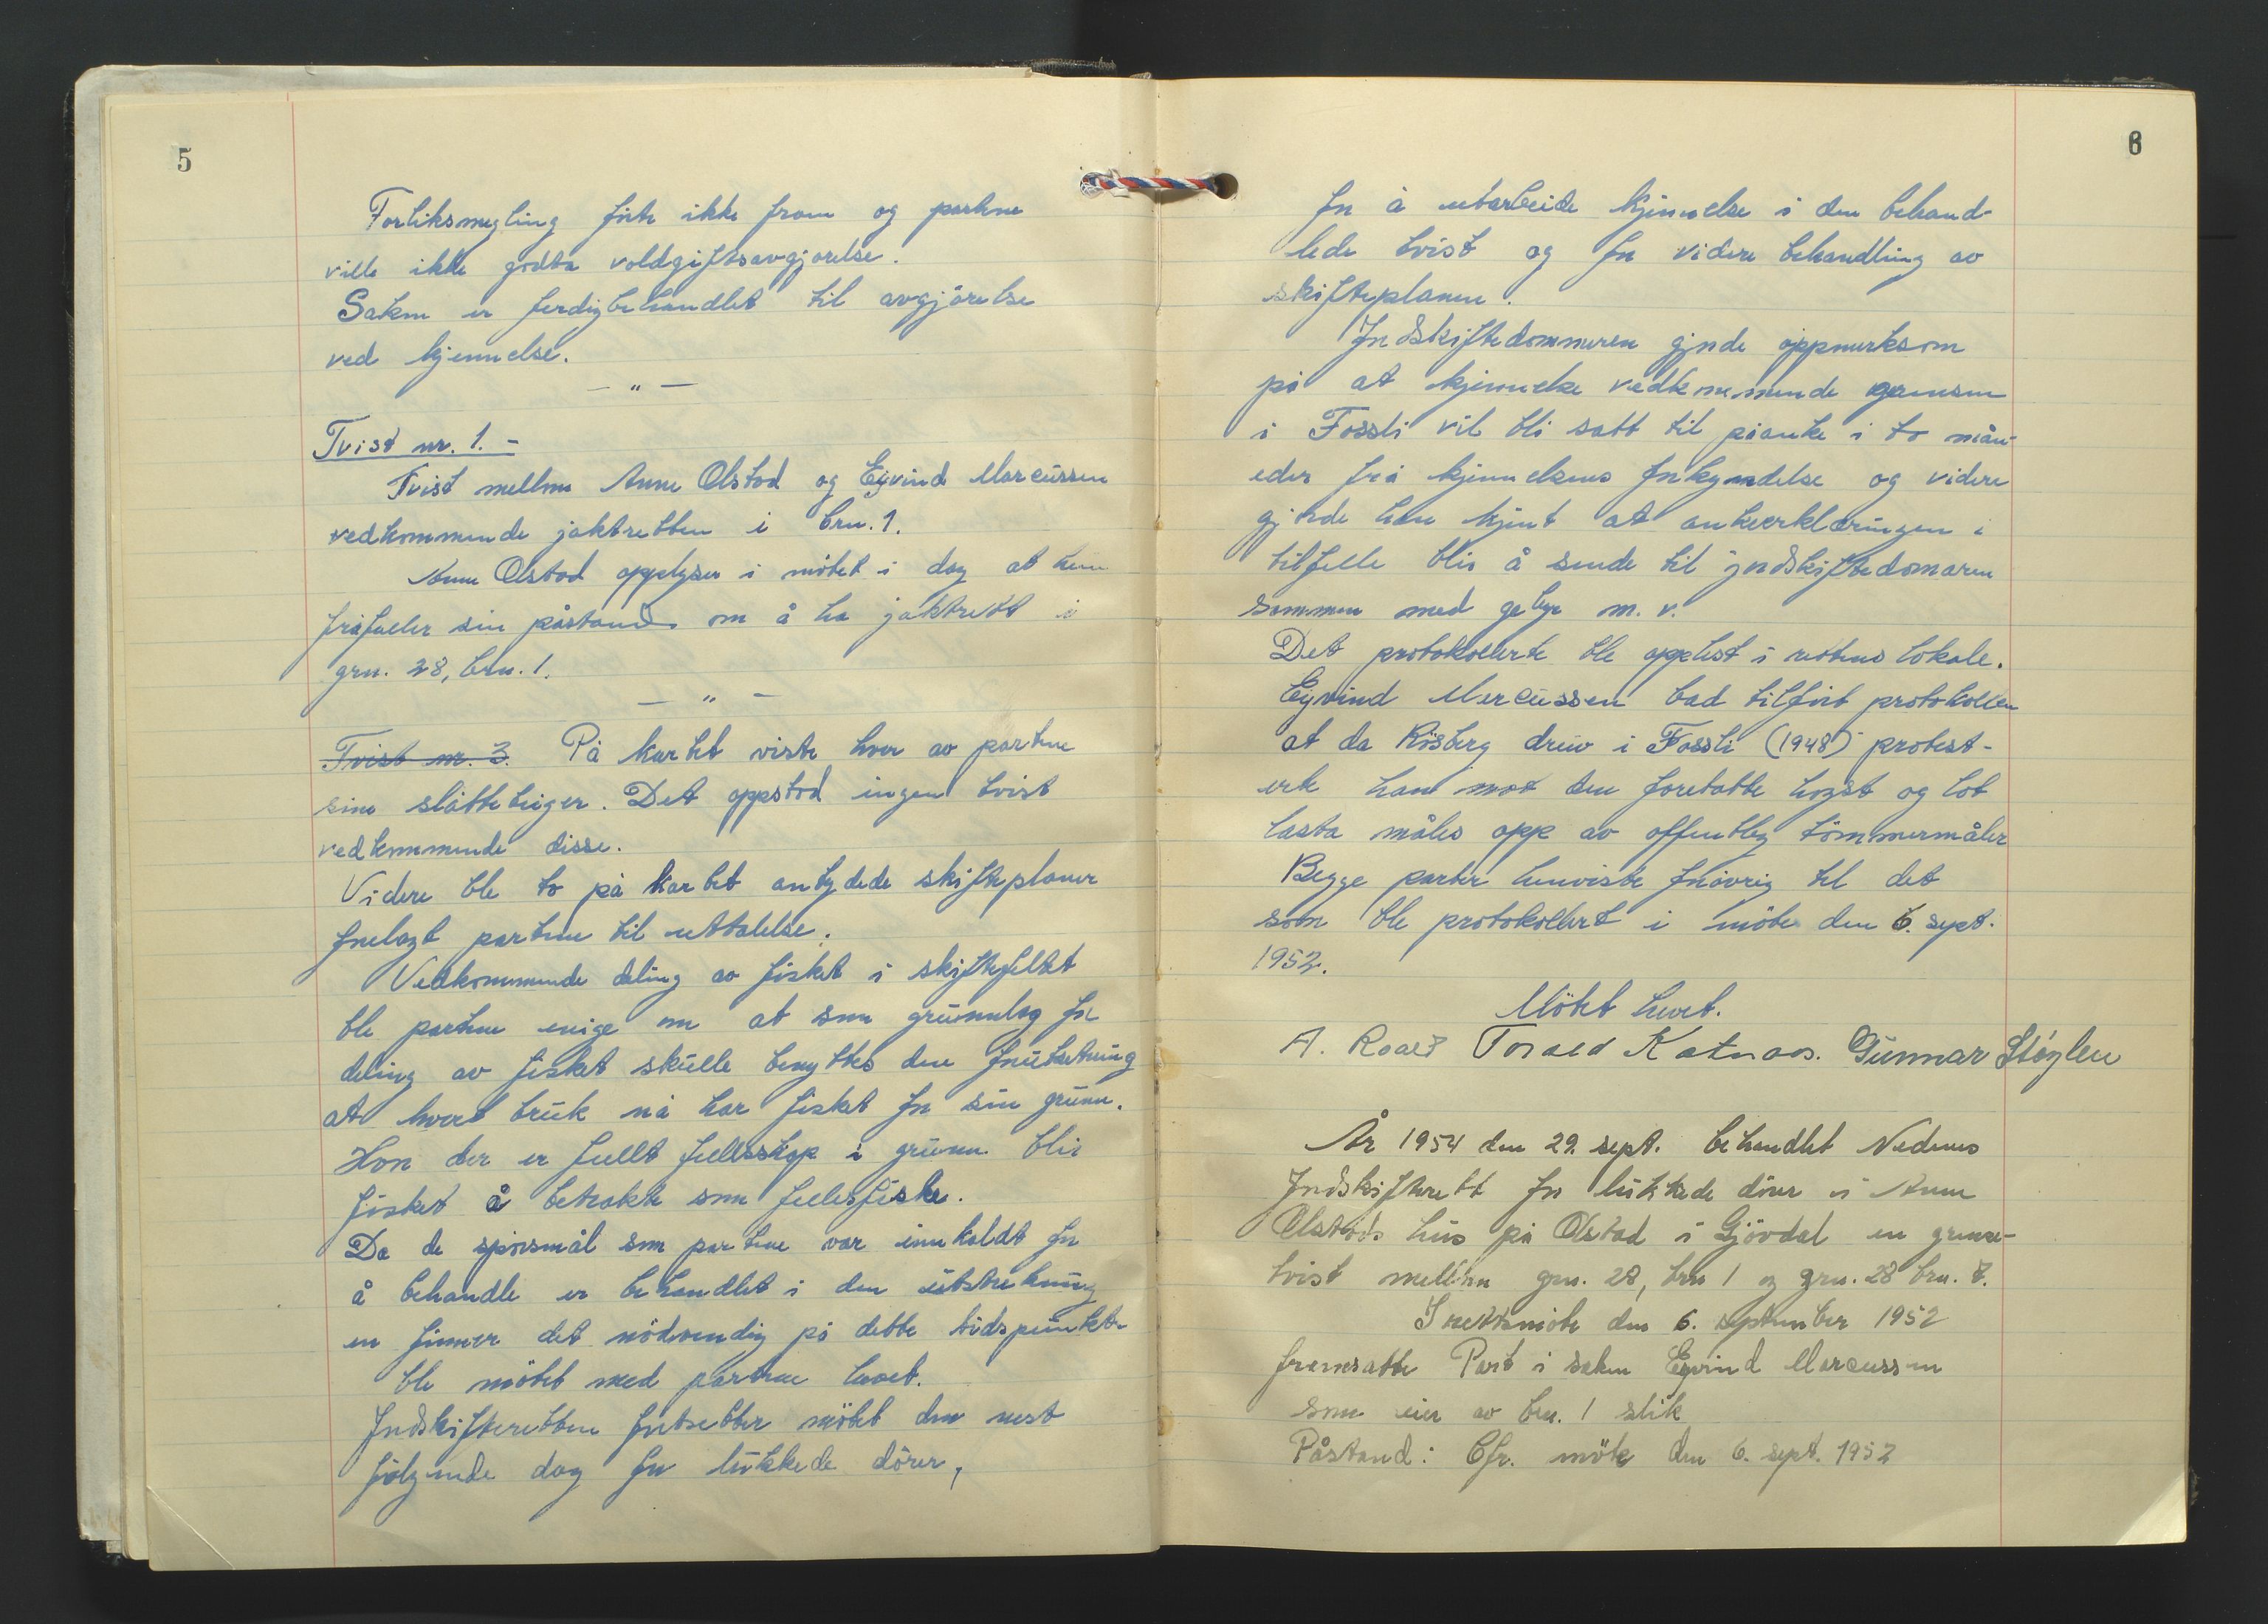 5
Forliksmegling førte ikke fram og partene
ville ikke godta voldgiftsavgjørelse.
Saken er ferdigbehandlet til avgjørelse
ved kjennelse.
— " —
Tvist nr. 1. -
Tvist mellom Anne Olstad og Eyvind Marcussen
vedkommende jaktretten i brn. 1.
Anne Olstad opplyser i møtet i dag at hun
frafaller sin påstand om å ha jaktrett i
grn. 28, brn. 1.
— " —
Tvist nr. 3. På kartet viste hver av partene
sine slåtteteiger. Det oppstod ingen tvist
vedkommende disse.
Videre ble to på kartet antydede skifteplaner
forelagt partene til uttalelse.
Vedkommende deling av fisket i skiftefeltet
ble partene enige om at som grunnlag for
deling av fisket skulle benyttes den forutsetning
at hvert bruk nå har fisket for sin grunn.
Hvor der er fullt fellesskap i grunn blir
fisket å betrakte som fellesfiske.
Da de spørsmål som partene var innkaldt for
å behandle er behandlet i den utstrekning
en finner det nödvendig på dette tidspunkt
ble møtet med partene hevet.
Jordskifteretten fortsetter møtet den nest
følgende dag for lukkede dörer,
6
for å utarbeide kjennelse i den behand-
lede tvist og for videre behandling av
skifteplanen.
Jordskiftedommeren gjorde oppmerksom
på at kjennelse vedkommende grensen
i Fossli vil bli satt til påanke i to mån-
eder fra kjennelsens forkyndelse og videre
gjorde han kjent at ankeerklæringen i
tilfelle blir å sende til jordskiftedomaren
sammen med gebyr m. v.
Det protokollerte ble opplest i rettens lokale.
Eyvind Marcussen bad tilført protokollen
at da Risberg drev i Fossli (1948) protest-
erte han mot den foretatte hogst og lot
lasta måles opp av offentleg tömmermåler
Begge parter henviste forövrig til det
som ble protokollert i möte den 6. sept.
1952.
Mötet hevet.
A. Roald Torald Katnaas. Gunnar Stöylen
År 1954 den 29. sept. behandlet Nedenes
Jordskifterett for lukkede dörer i Anne
Olstads hus på Olstad i Gjövdal en grense-
tvist mellom grn. 28, brn 1 og grn. 28 brn. 8.
I rettsmöte den 6. september 1952
fremsatte Part i saken Eyvind Marcussen
som eier av brn. 1 slik
Påstand: Cfr. möte den 6. sept. 1952